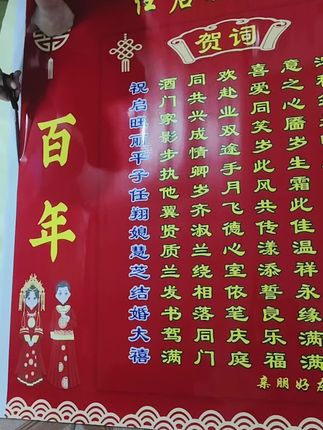 任启
贺词
百年
祝酒同欢喜意深
启门共赴爱之
旺家兴业同心
丽影成双笑靥
平步情途岁岁
子执卿手此生
任他岁月风霜
翔翼齐飞共此
媳贤淑德传佳
慧质兰心漾温
芝兰绕室添祥
结发相依誓永
婚书落笔良缘
大驾同庆乐满
禧满门庭福满
亲朋好友